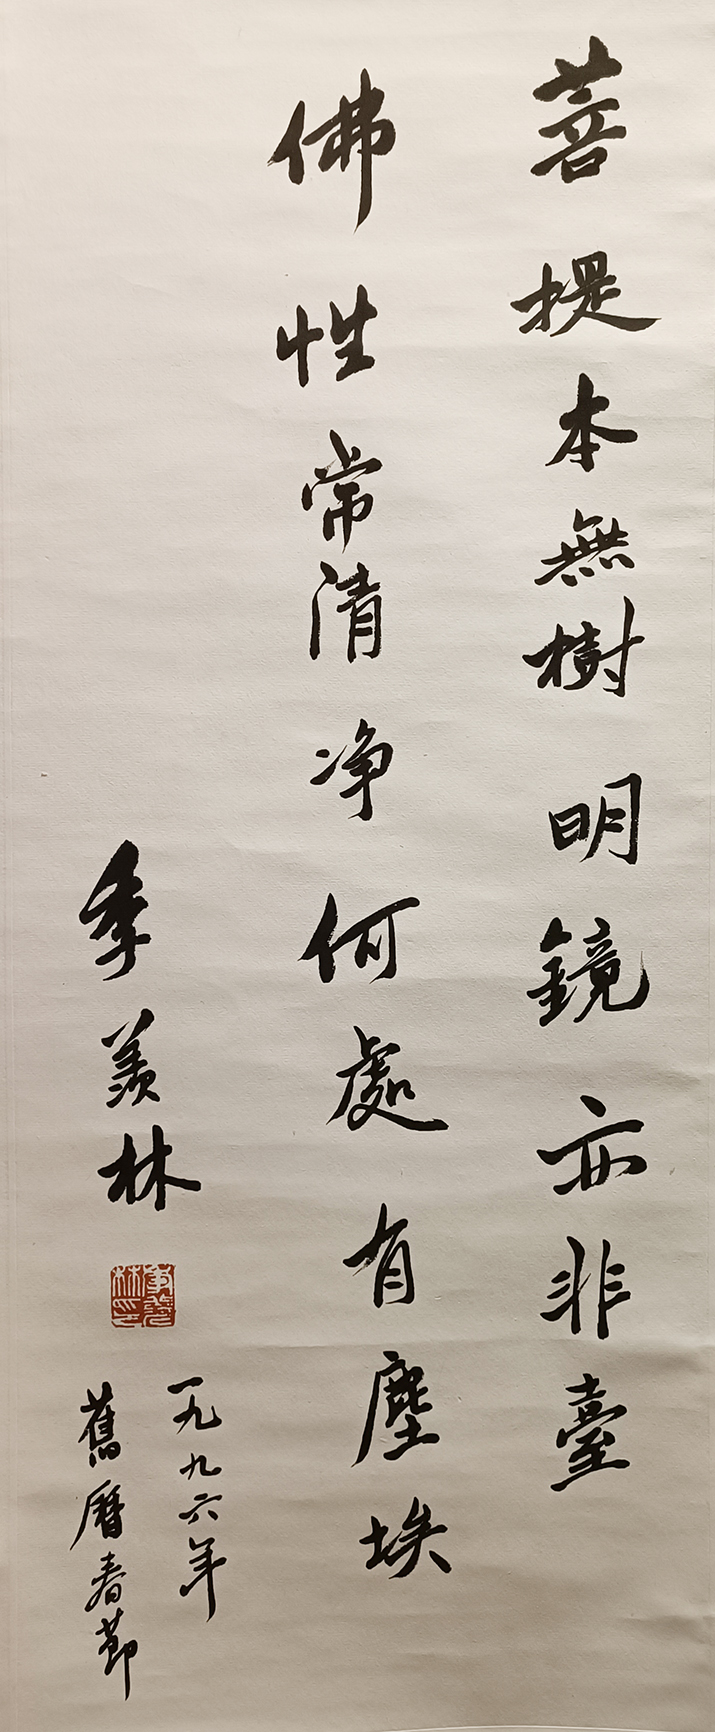 菩提本無樹明鏡亦非臺
佛性常清净何處有塵埃
季羨林
季羨林印
一九九六年
舊曆春節